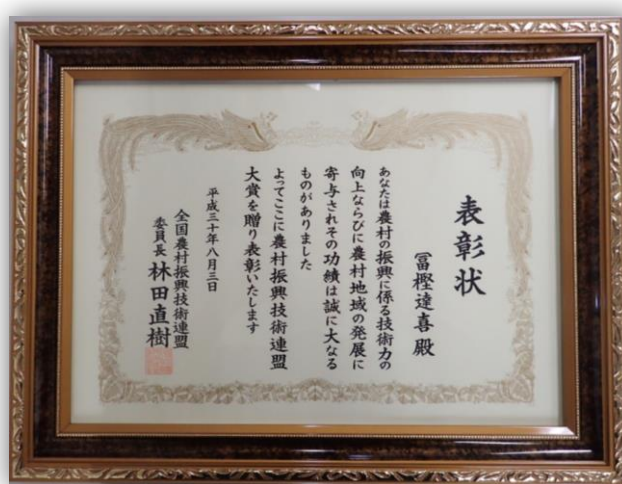 表彰状
冨樫達喜殿
あなたは農村の振興に係る技術力の
向上ならびに農村地域の発展に
寄与されその功績は誠に大なる
ものがありました
よってここに農村振興技術連盟
大賞を贈り表彰いたします
平成三十年八月三日
全国農村振興技術連盟
委員長 林田直樹